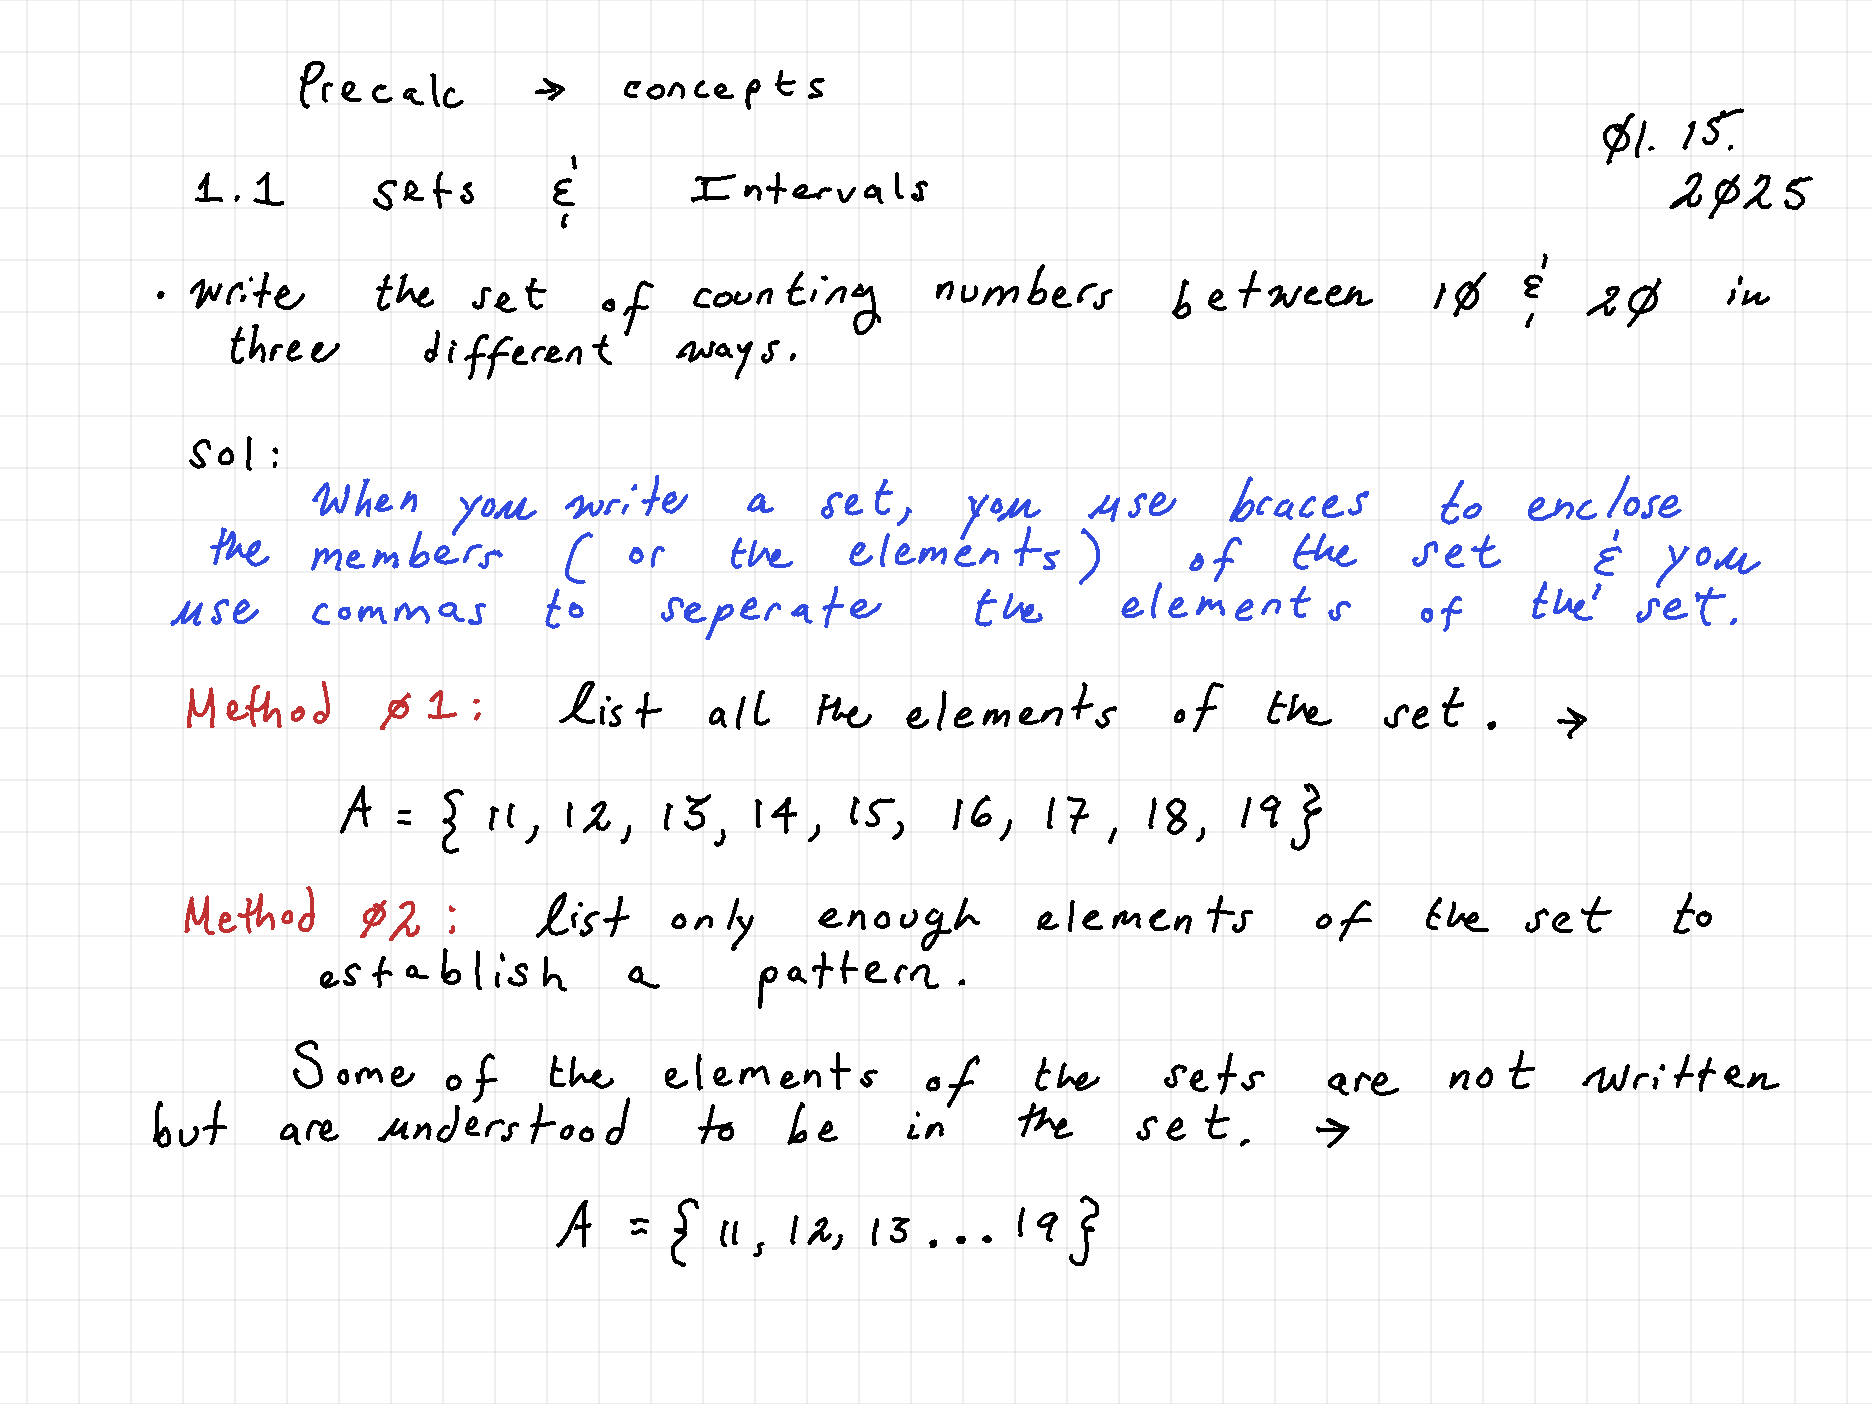 Precalc → concepts
Ø1. 15.
2Ø25
1.1 sets & Intervals
• write the set of counting numbers between 1Ø & 2Ø in
three different ways.
Sol:
When you write a set, you use braces to enclose
the members (or the elements) of the set & you
use commas to seperate the elements of the set.
Method Ø1: list all the elements of the set. →
A = { 11, 12, 13, 14, 15, 16, 17, 18, 19}
Method Ø2: list only enough elements of the set to
establish a pattern.
Some of the elements of the sets are not written
but are understood to be in the set. →
A = { 11, 12, 13 ... 19}